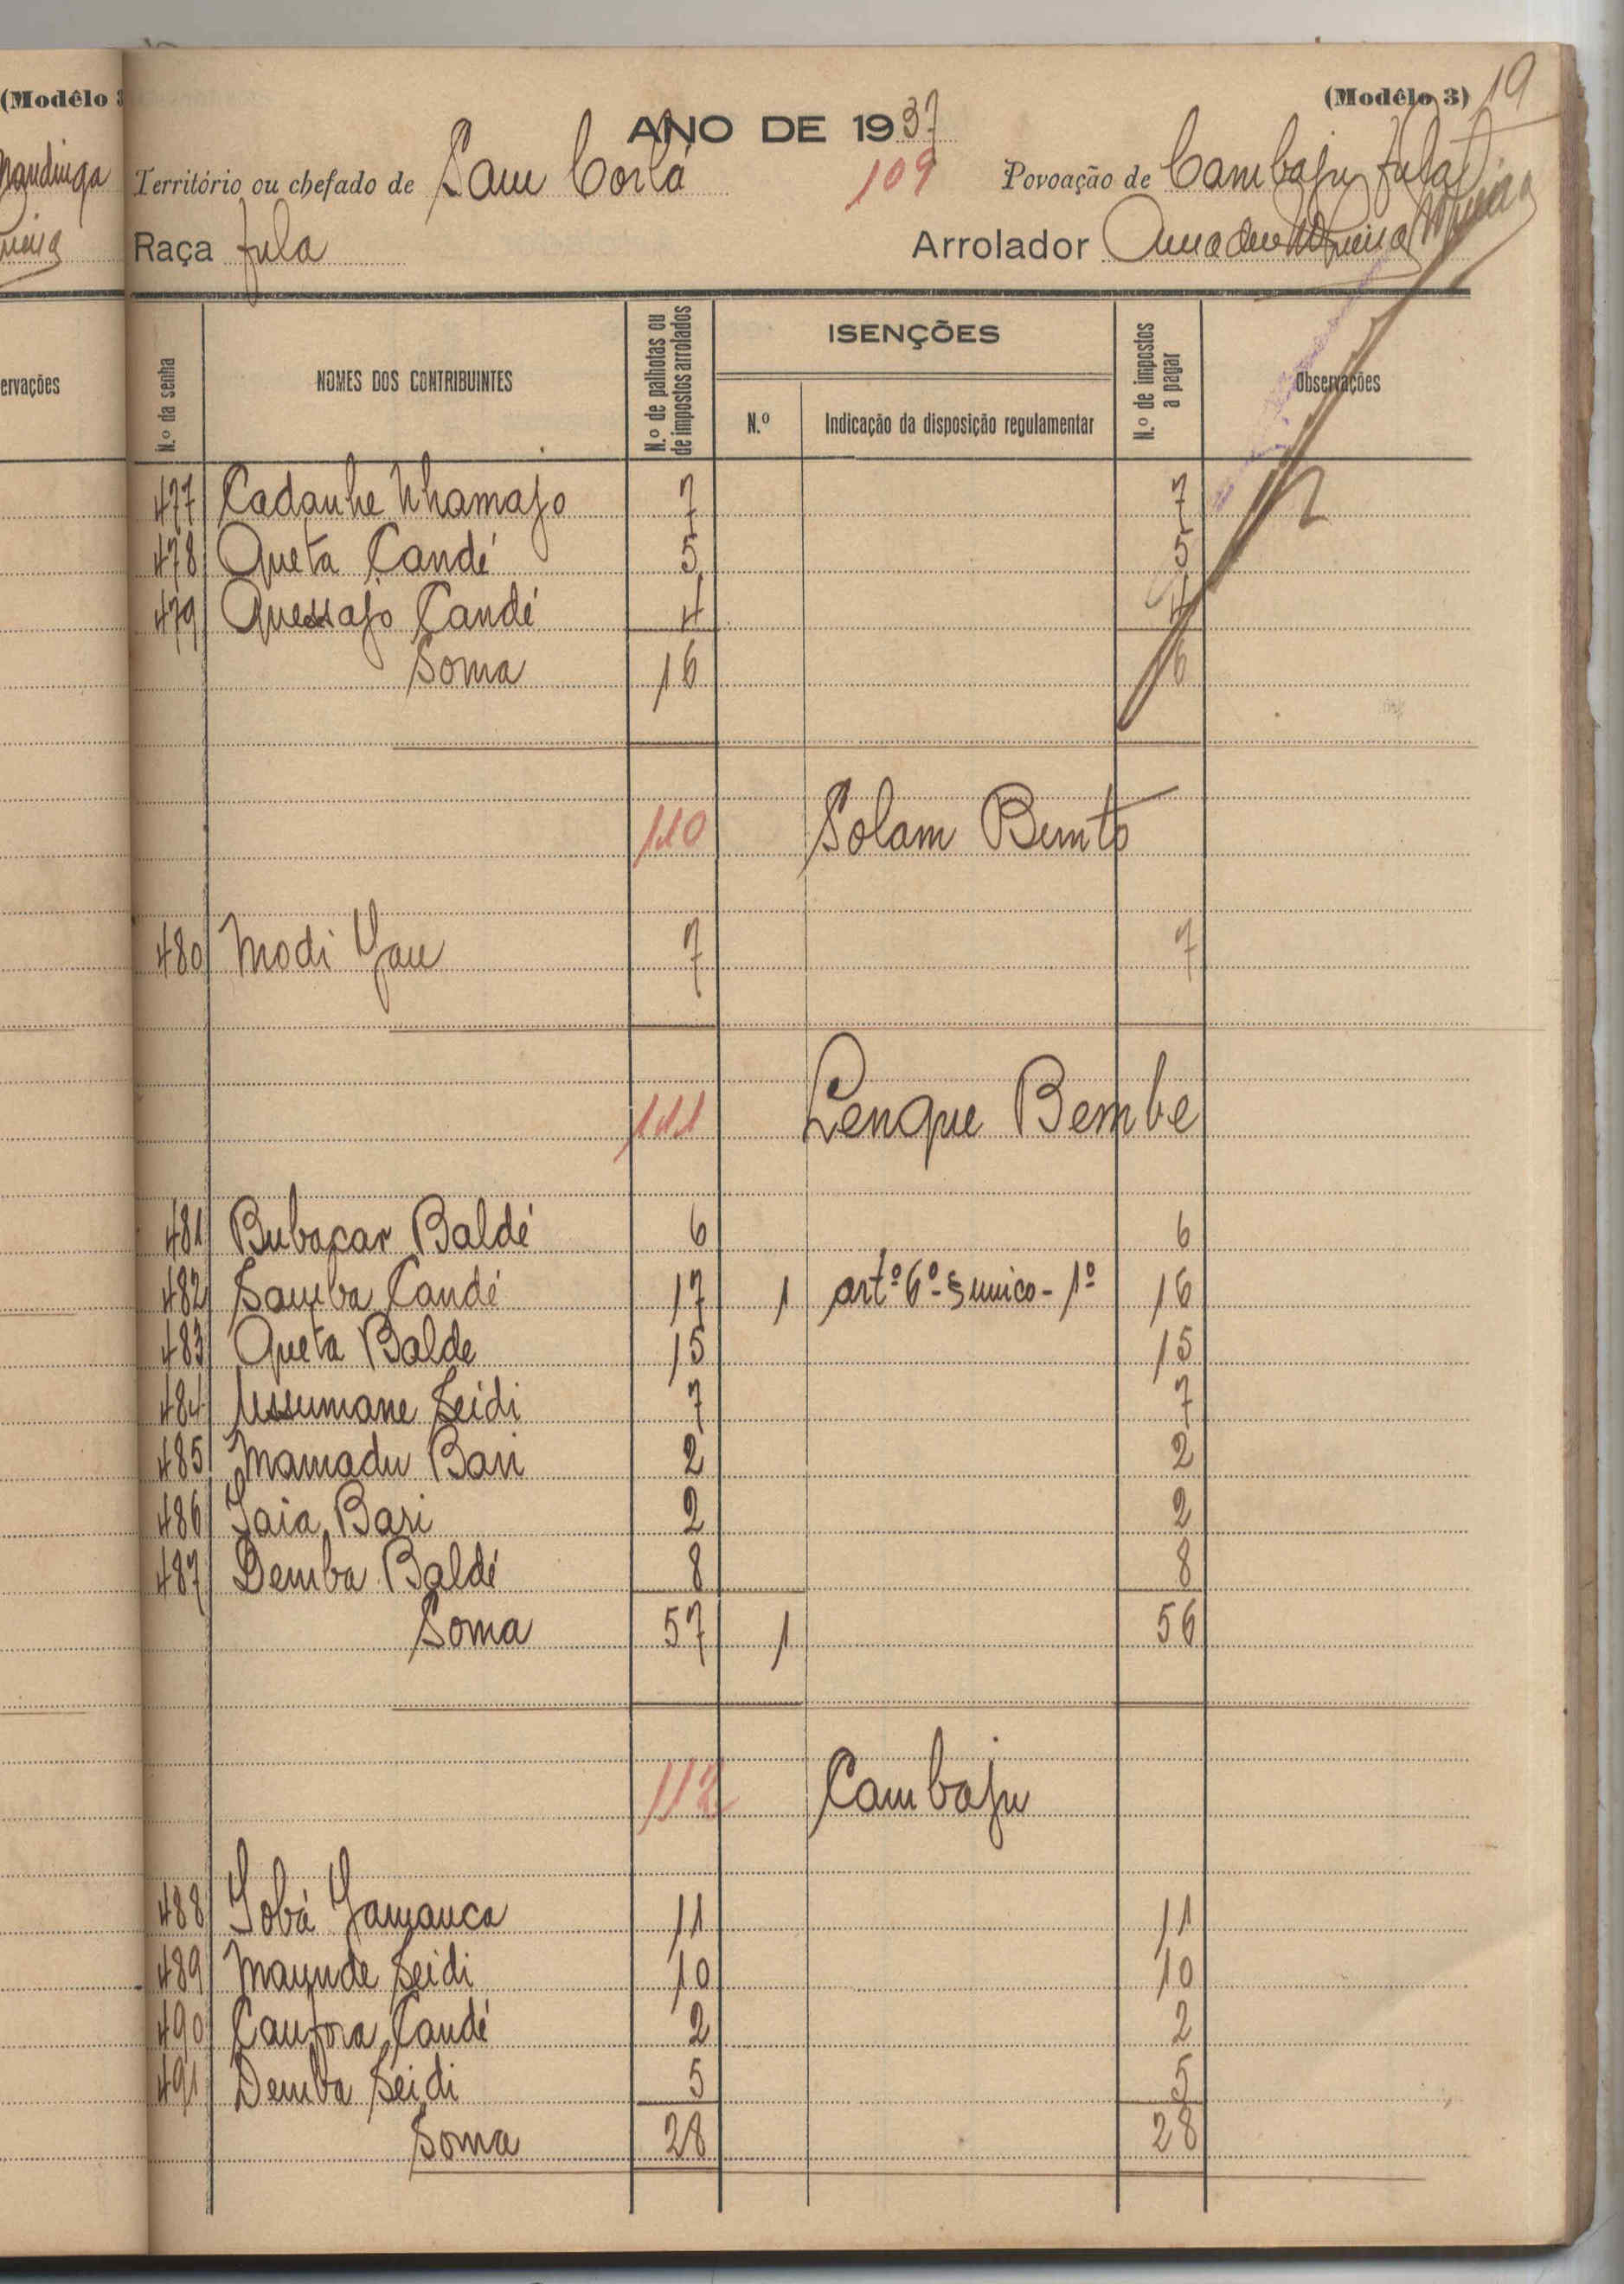 (Modêlo 3
(Modêlo 3) 19
ANO DE 1937
Mandinga
Território ou chefado de Sam Corlá 109 Povoação de Cambaju fula
Raça fula Arrolador Amadeu
ervações
N.º da senha
NOMES DOS CONTRIBUINTES
N.º de palhotas ou de impostos arrolados
ISENÇÕES
N.º
Indicação da disposição regulamentar
N.º de impostos a pagar
Observações
477 Cadanhe Nhamajo 7 7
478 Queta Candé 5 5
479 Quessajo Candé 4 4
Soma 16 16
110 Solam Bunto
480 Modi Jau 7 7
111 Lenque Bembe
481 Bubacar Baldé 6 6
482 Samba Candé 17 1 artº 6º - § unico - 1º 16
483 Queta Balde 15 15
484 Ussumane Seidi 7 7
485 Mamadu Bari 2 2
486 Iaia Bari 2 2
487 Demba Baldé 8 8
Soma 57 1 56
112 Cambaju
488 Iobá Jamanca 11 11
489 Maunde Seidi 10 10
490 Candé 2 2
491 Demba Seidi 5 5
Soma 28 28